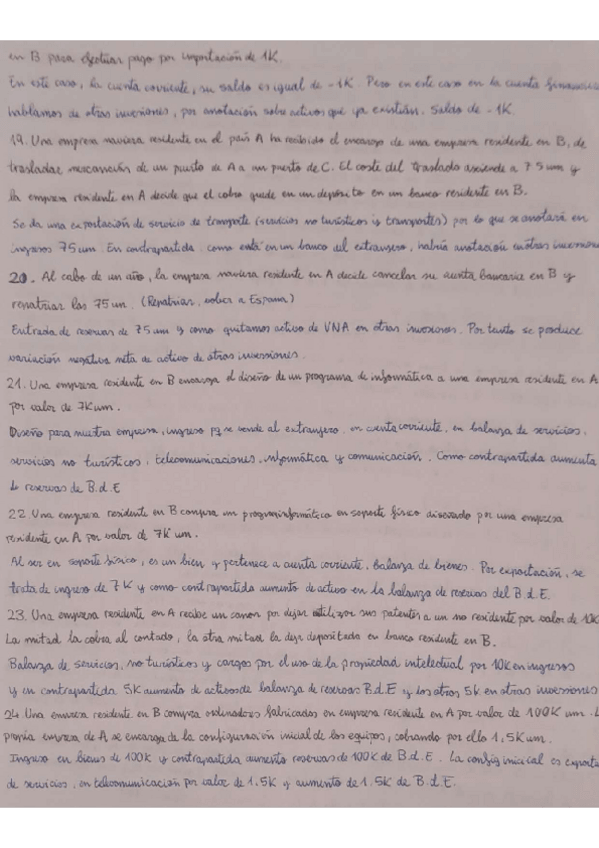 en B para efectuar pago por importación de 1K.
En este caso, la cuenta corriente, su saldo es igual de -1K. Pero en este caso en la cuenta financiera
hablamos de otras inversiones, por anotación sobre activos que ya existían. Saldo de -1K.
19. Una empresa naviera residente en el país A ha recibido el encargo de una empresa residente en B, de
trasladar mercancías de un puerto de A a un puerto de C. El coste del traslado asciende a 75 um y
la empresa residente en A decide que el cobro quede en un depósito en un banco residente en B.
Se da una exportación de servicio de transporte (servicios no turísticos y transportes) por lo que se anotará en
ingresos 75 um. En contrapartida como está en un banco del extranjero, habría anotación en otras inversiones
20. Al cabo de un año, la empresa naviera residente en A decide cancelar su cuenta bancaria en B y
repatriar las 75 um. (Repatriar, volver a España)
Entrada de reservas de 75 um y como quitamos activo de VNA en otras inversiones. Por tanto se produce
variación negativa neta de activo de otras inversiones.
21. Una empresa residente en B encarga el diseño de un programa de informática a una empresa residente en A
por valor de 7K um.
Diseño para nuestra empresa, ingreso pq se vende al extranjero. en cuenta corriente, en balanza de servicios.
servicios no turísticos, telecomunicaciones, informática y comunicación. Como contrapartida aumenta
de reservas de B.d.E
22 Una empresa residente en B compra un programa informático en soporte físico diseñado por una empresa
residente en A por valor de 7K um.
Al ser en soporte físico, es un bien y pertenece a cuenta corriente, balanza de bienes. Por exportación, se
trata de ingreso de 7K y como contrapartida aumento de activo en la balanza de reservas del B.d.E.
23. Una empresa residente en A recibe un canon por dejar utilizar sus patentes a un no residente por valor de 10K
La mitad la cobra al contado, la otra mitad la deja depositada en banco residente en B.
Balanza de servicios, no turísticos y cargos por el uso de la propiedad intelectual por 10K en ingresos
y en contrapartida 5K aumento de activos de balanza de reservas B.d.E y los otros 5K en otras inversiones
24. Una empresa residente en B compra ordenadores fabricados en empresa residente en A por valor de 100K um. L
propia empresa de A se encarga de la configuración inicial de los equipos, cobrando por ello 1,5K um.
Ingreso en bienes de 100K y contrapartida aumento reservas de 100K de B.d.E. La config inicial es exporta
de servicios, en telecomunicación por valor de 1.5K y aumento de 1.5K de B.d.E.